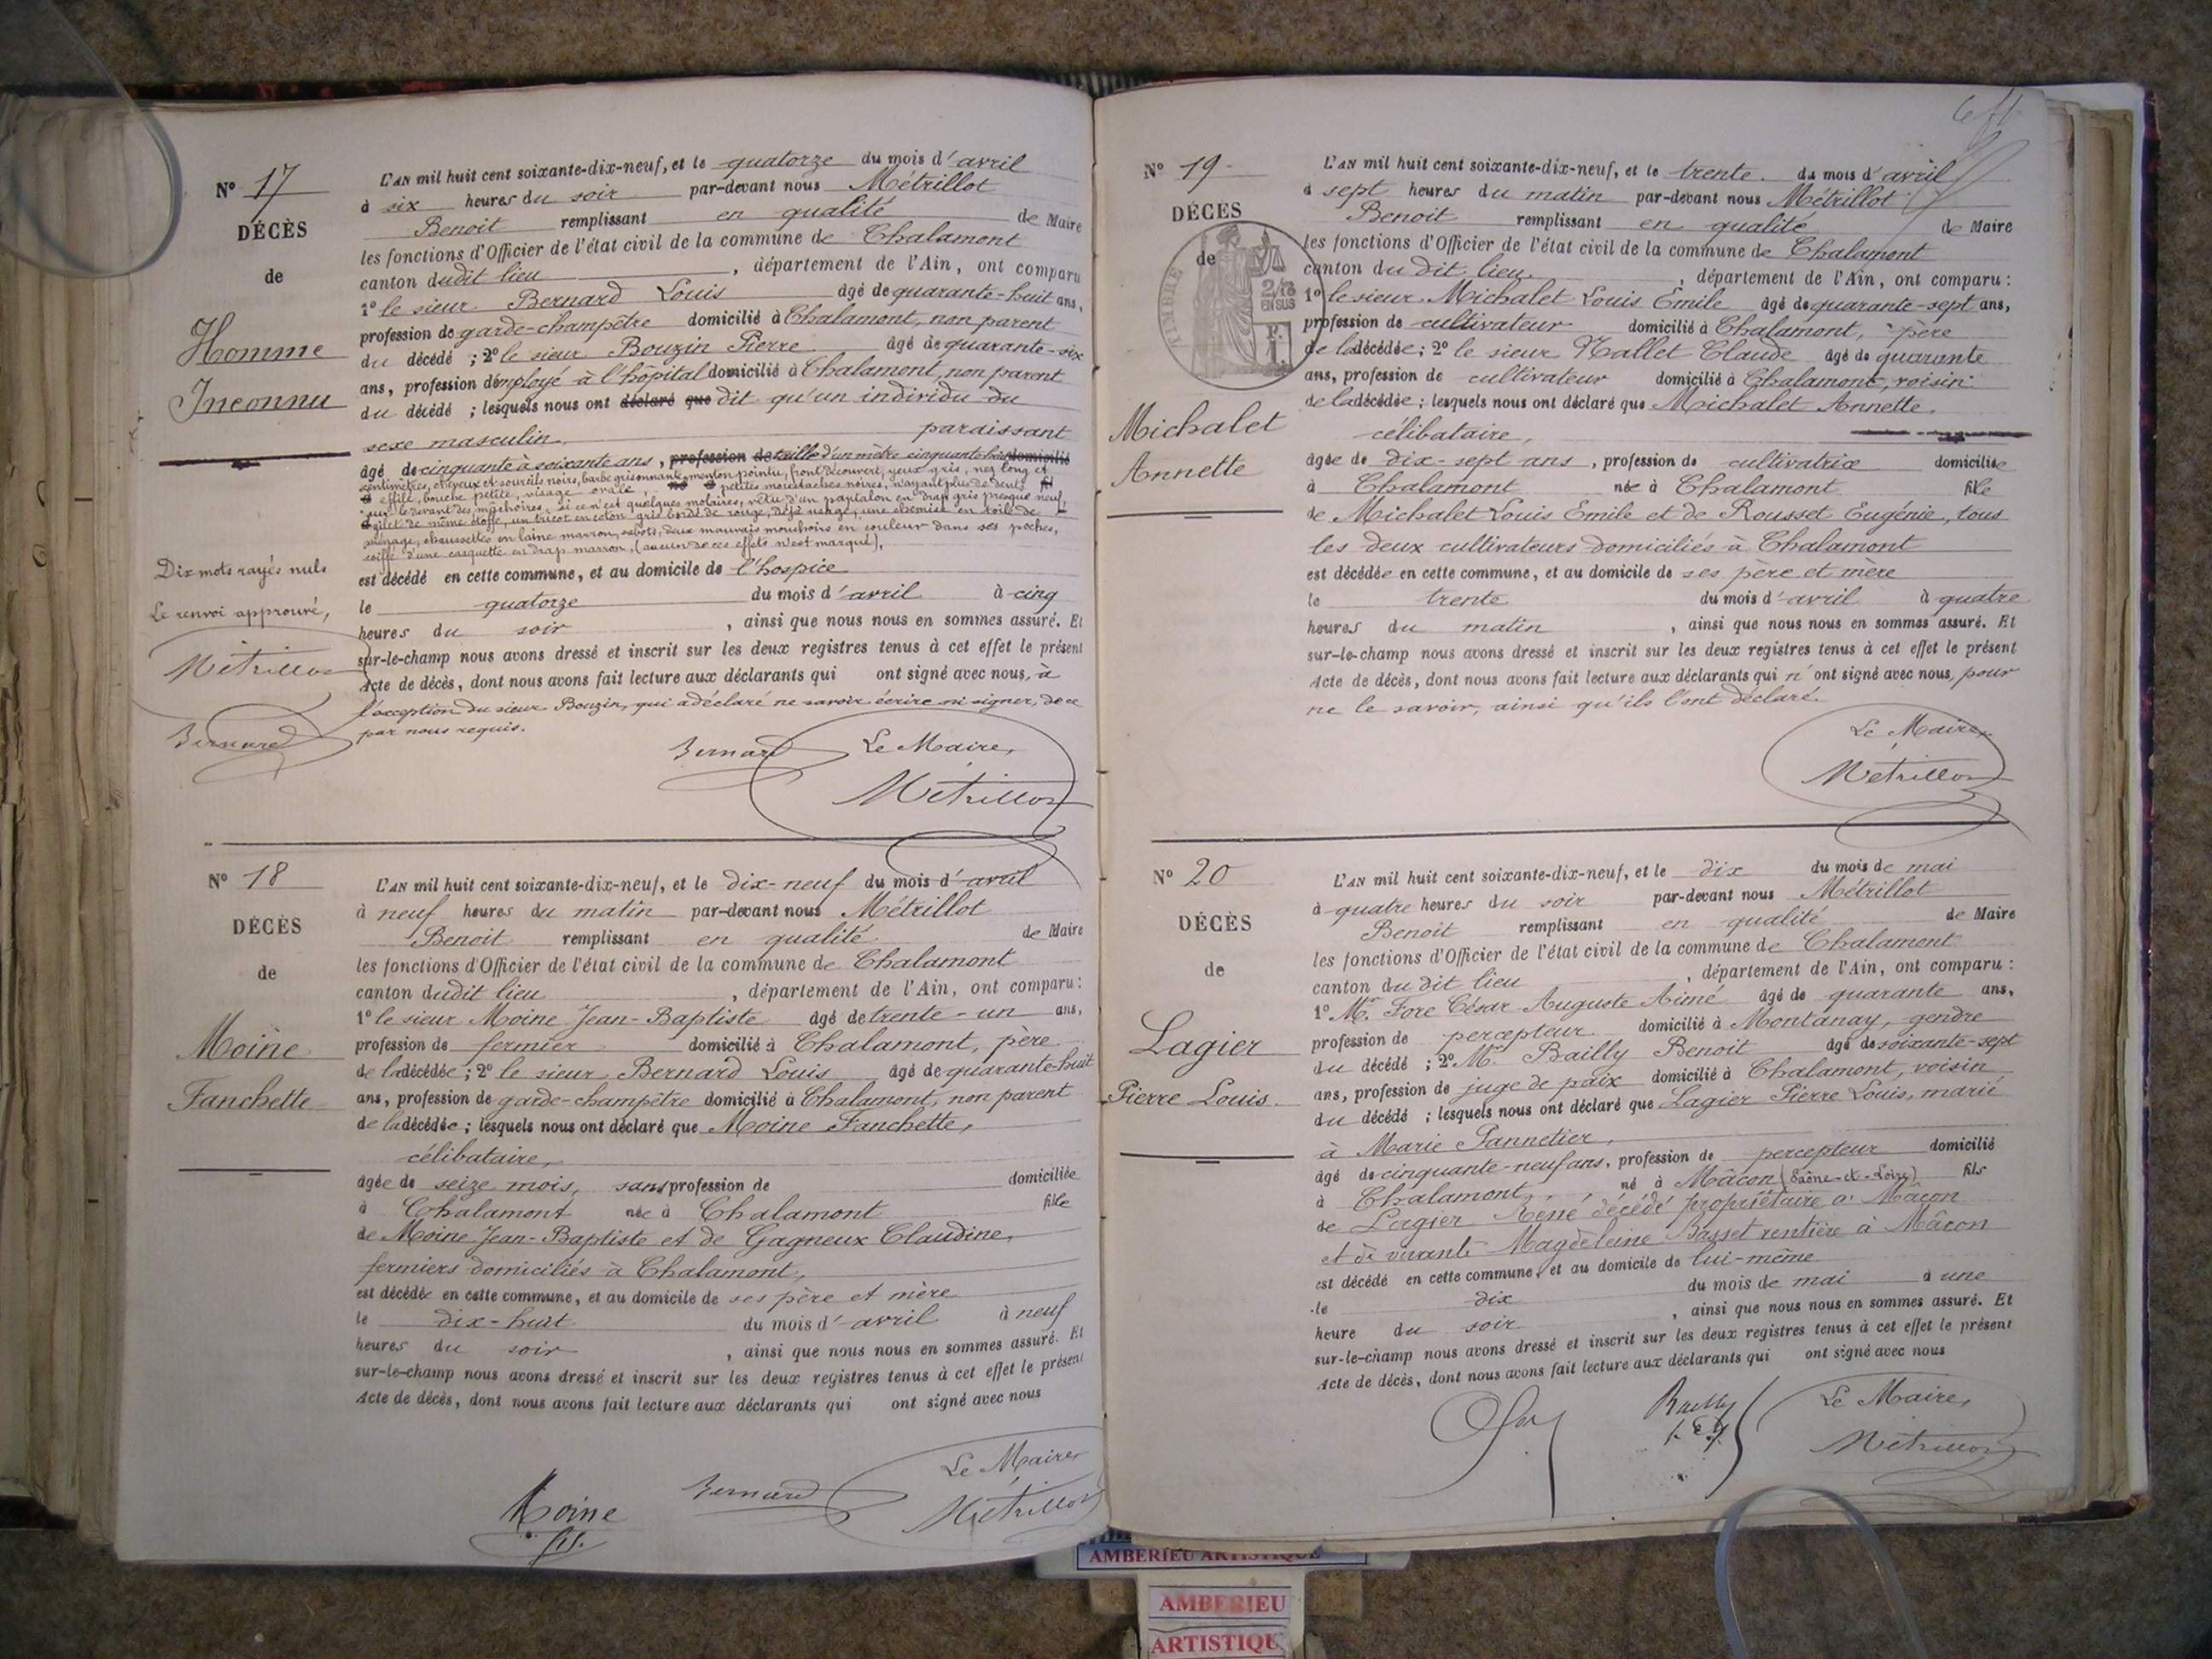 N° 17
DÉCÈS
de
Homme
Inconnu
Dix mots rayés nuls
Le renvoi approuvé,
Métrillot
Bernard
L'AN mil huit cent soixante-dix-neuf, et le quatorze du mois d'avril
à six heures du soir par-devant nous Métrillot
Benoit remplissant en qualité de Maire
les fonctions d'Officier de l'état civil de la commune de Chalamont
canton dudit lieu, département de l'Ain, ont comparu
1° le sieur Bernard Louis âgé de quarante-huit ans,
profession de garde-champêtre domicilié à Chalamont, non parent
du décédé ; 2° le sieur Bouzin Pierre âgé de quarante-six
ans, profession d'employé à l'hôpital domicilié à Chalamont, non parent
du décédé ; lesquels nous ont déclaré que dit qu'un individu du
sexe masculin, paraissant
âgé de cinquante à soixante ans, profession de taille d'un mètre cinquante domicilié
centimètres, cheveux et sourcils noirs, barbe grisonnante, menton pointu, front découvert, yeux gris, nez long et
effilé, bouche petite, visage ovale, petites moustaches noires, n'ayant plus de dents
sur le devant des mâchoires, si ce n'est quelques molaires, vêtu d'un pantalon en drap gris presque neuf,
gilet de même étoffe, un tricot en coton gris bordé de rouge, déjà usagé, une chemise en toile de
ménage, chaussettes en laine marron, sabots, deux mauvais mouchoirs en couleur dans ses poches,
coiffé d'une casquette en drap marron, (aucun de ces effets n'est marqué),
est décédé en cette commune, et au domicile de l'hospice
le quatorze du mois d'avril à cinq
heures du soir, ainsi que nous nous en sommes assuré. Et
sur-le-champ nous avons dressé et inscrit sur les deux registres tenus à cet effet le présent
Acte de décès, dont nous avons fait lecture aux déclarants qui ont signé avec nous, à
l'exception du sieur Bouzin, qui a déclaré ne savoir écrire ni signer, de ce
par nous requis.
Bernard Le Maire,
Métrillot
N° 18
DÉCÈS
de
Moine
Fanchette
L'AN mil huit cent soixante-dix-neuf, et le dix-neuf du mois d'avril
à neuf heures du matin par-devant nous Métrillot
Benoit remplissant en qualité de Maire
les fonctions d'Officier de l'état civil de la commune de Chalamont
canton dudit lieu, département de l'Ain, ont comparu :
1° le sieur Moine Jean-Baptiste âgé de trente-un ans,
profession de fermier domicilié à Chalamont, père
de la décédée ; 2° le sieur Bernard Louis âgé de quarante-huit
ans, profession de garde-champêtre domicilié à Chalamont, non parent
de la décédée ; lesquels nous ont déclaré que Moine Fanchette,
célibataire,
âgée de seize mois, sans profession de domiciliée
à Chalamont née à Chalamont fille
de Moine Jean-Baptiste et de Gagneux Claudine,
fermiers domiciliés à Chalamont,
est décédée en cette commune, et au domicile de ses père et mère
le dix-huit du mois d'avril à neuf
heures du soir, ainsi que nous nous en sommes assuré. Et
sur-le-champ nous avons dressé et inscrit sur les deux registres tenus à cet effet le présent
Acte de décès, dont nous avons fait lecture aux déclarants qui ont signé avec nous
Le Maire
Moine Bernard Métrillot
N° 19
DÉCÈS
de
TIMBRE
2/10
EN SUS
Michalet
Annette
L'AN mil huit cent soixante-dix-neuf, et le trente du mois d'avril
à sept heures du matin par-devant nous Métrillot
Benoit remplissant en qualité de Maire
les fonctions d'Officier de l'état civil de la commune de Chalamont
canton du dit lieu, département de l'Ain, ont comparu :
1° le sieur Michalet Louis Emile âgé de quarante-sept ans,
profession de cultivateur domicilié à Chalamont, père
de la décédée ; 2° le sieur Nallet Claude âgé de quarante
ans, profession de cultivateur domicilié à Chalamont, voisin
de la décédée ; lesquels nous ont déclaré que Michalet Annette,
célibataire,
âgée de dix-sept ans, profession de cultivatrice domiciliée
à Chalamont née à Chalamont fille
de Michalet Louis Emile et de Rousset Eugénie, tous
les deux cultivateurs domiciliés à Chalamont
est décédée en cette commune, et au domicile de ses père et mère
le trente du mois d'avril à quatre
heures du matin, ainsi que nous nous en sommes assuré. Et
sur-le-champ nous avons dressé et inscrit sur les deux registres tenus à cet effet le présent
Acte de décès, dont nous avons fait lecture aux déclarants qui n'ont signé avec nous, pour
ne le savoir, ainsi qu'ils l'ont déclaré.
Le Maire,
Métrillot
N° 20
DÉCÈS
de
Lagier
Pierre Louis
L'AN mil huit cent soixante-dix-neuf, et le dix du mois de mai
à quatre heures du soir par-devant nous Métrillot
Benoit remplissant en qualité de Maire
les fonctions d'Officier de l'état civil de la commune de Chalamont
canton du dit lieu, département de l'Ain, ont comparu :
1° Mr. Fore César Auguste Aimé âgé de quarante ans,
profession de percepteur domicilié à Montanay, gendre
du décédé ; 2° Mr Bailly Benoit âgé de soixante-sept
ans, profession de juge de paix domicilié à Chalamont, voisin
du décédé ; lesquels nous ont déclaré que Lagier Pierre Louis, marié
à Marie Pannetier,
âgé de cinquante-neuf ans, profession de percepteur domicilié
à Chalamont, né à Mâcon (Saône-et-Loire) fils
de Lagier René décédé propriétaire à Mâcon
et de vivante Magdeleine Basset rentière à Mâcon
est décédé en cette commune, et au domicile de lui-même
le dix du mois de mai à une
heure du soir, ainsi que nous nous en sommes assuré. Et
sur-le-champ nous avons dressé et inscrit sur les deux registres tenus à cet effet le présent
Acte de décès, dont nous avons fait lecture aux déclarants qui ont signé avec nous
Bailly Le Maire,
Métrillot
AMBERIEU ARTISTIQUE
AMBERIEU
ARTISTIQU